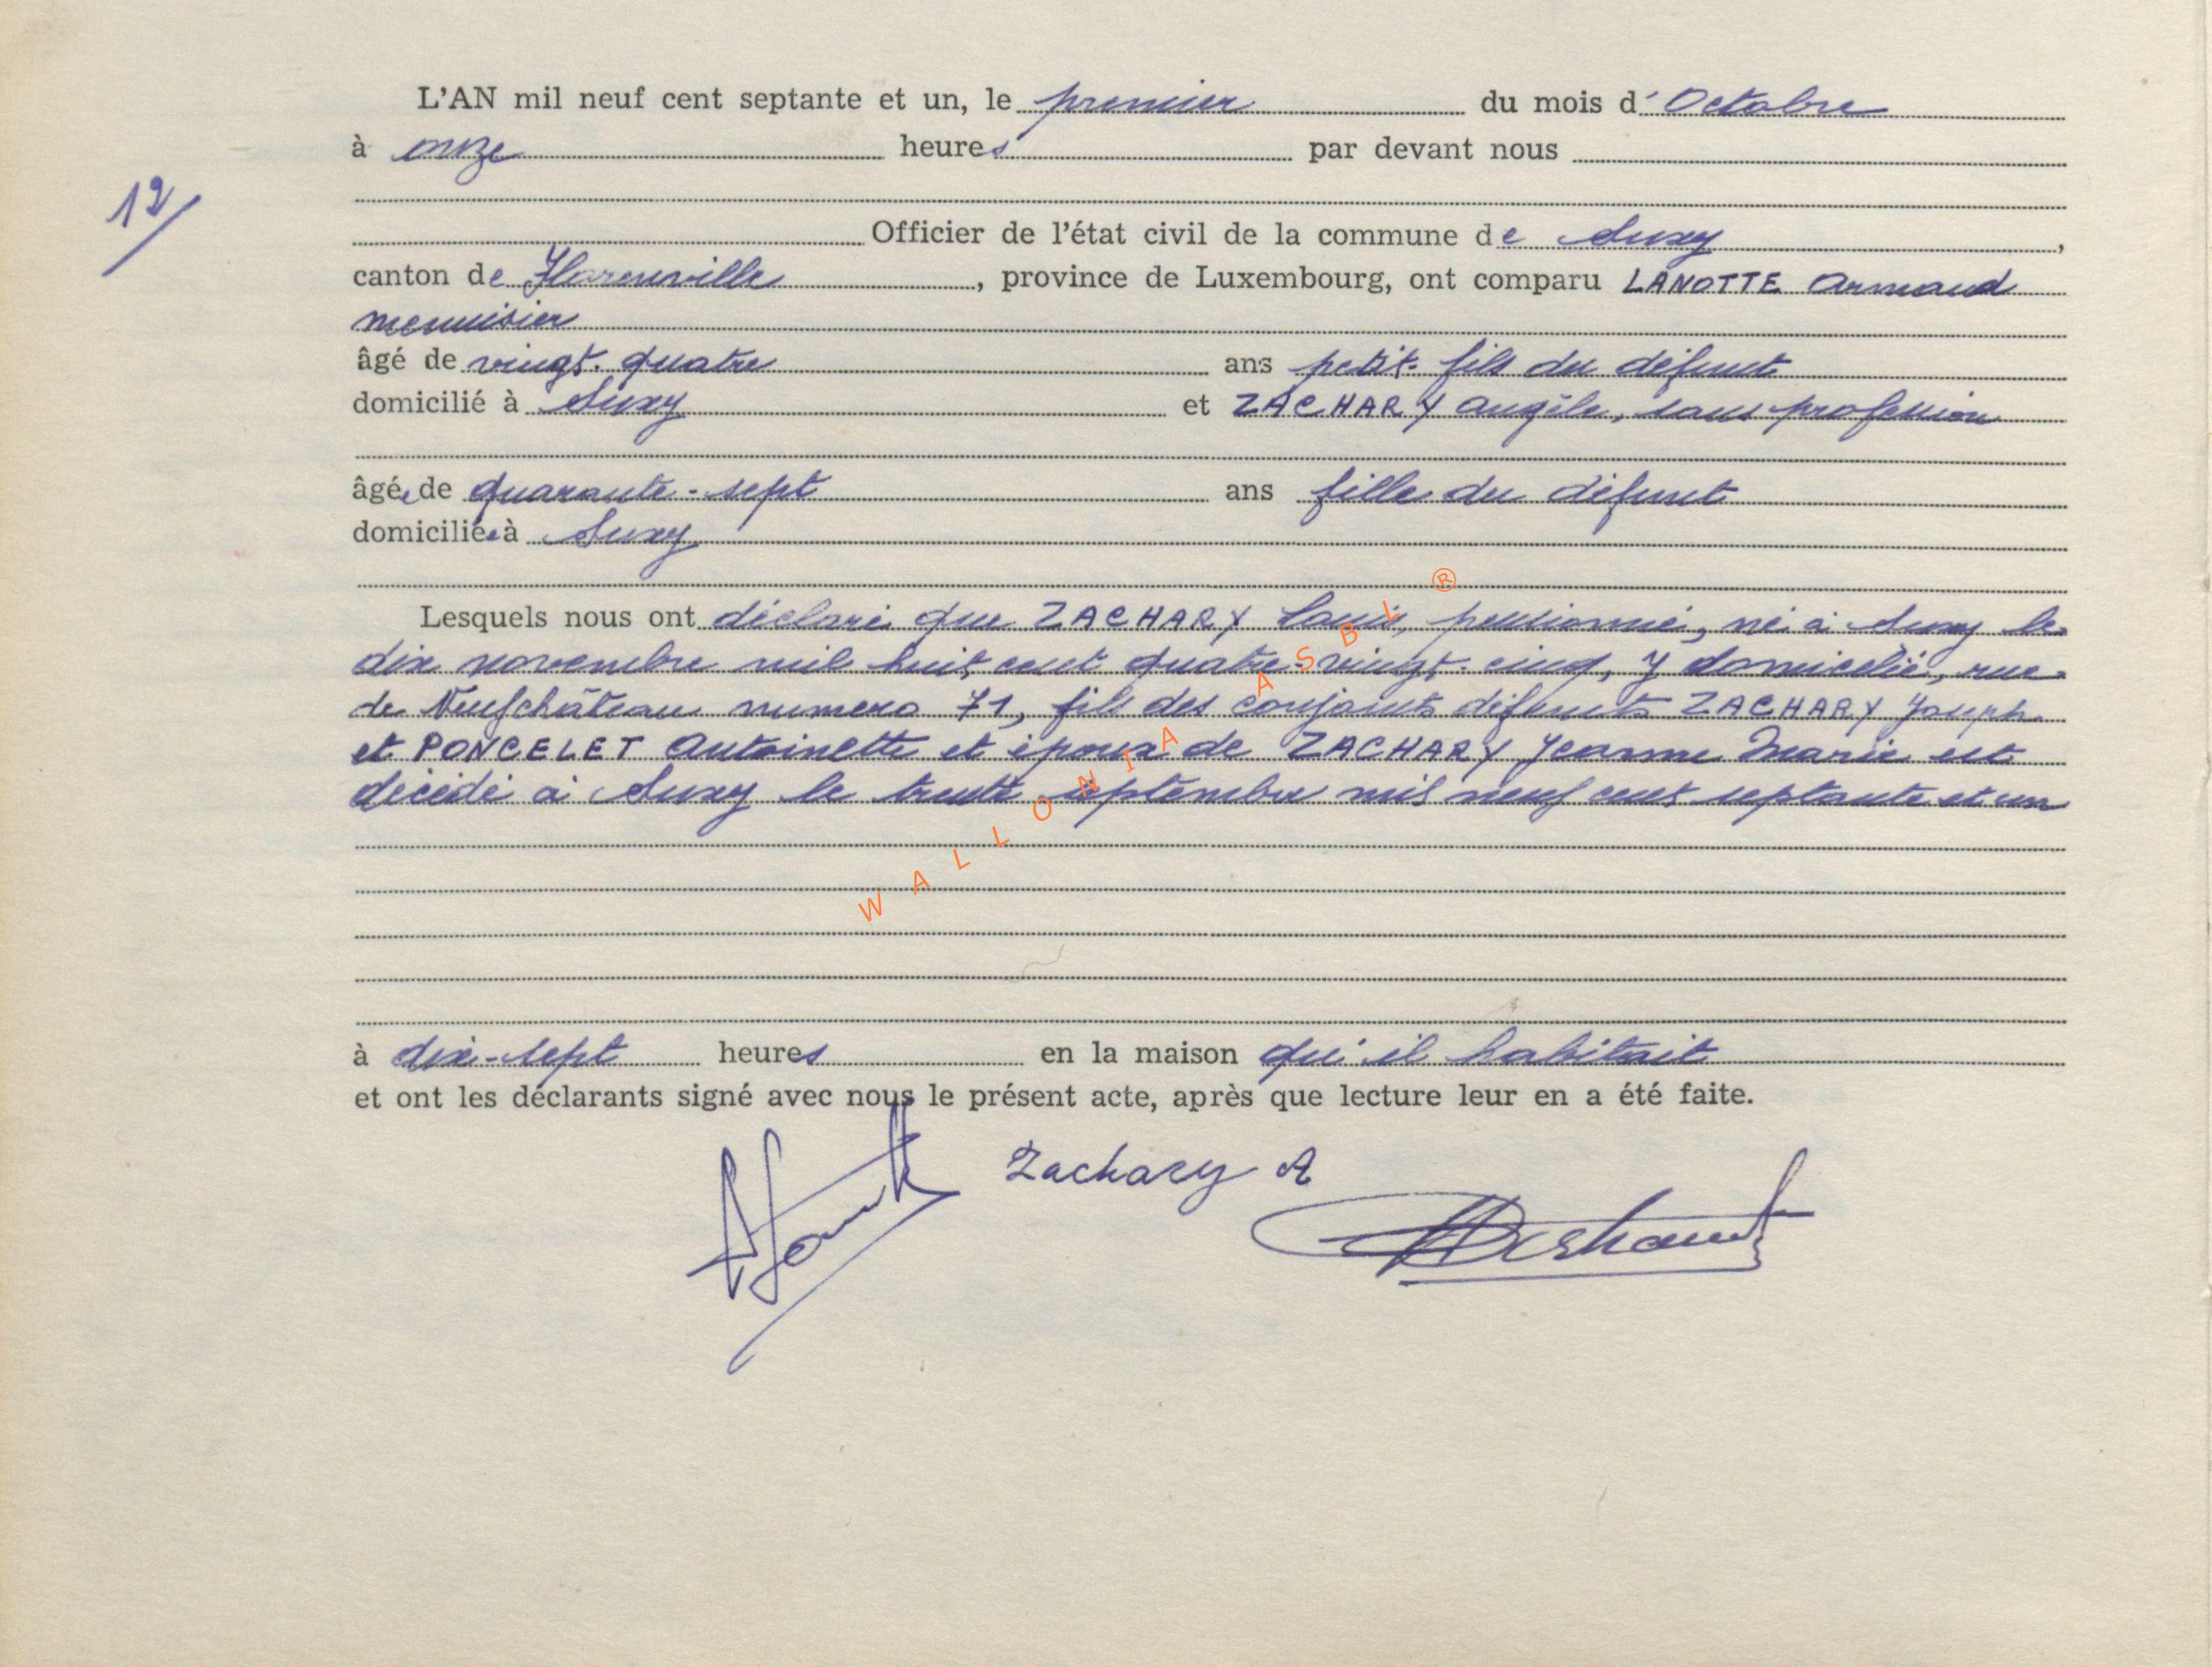 L'AN mil neuf cent septante et un, le premier du mois d'Octobre
à onze heures par devant nous
12/
Officier de l'état civil de la commune de Suxy,
canton de Florenville, province de Luxembourg, ont comparu LANOTTE Armand
menuisier
âgé de vingt-quatre ans petit-fils du défunt
domicilié à Suxy et ZACHARY Angèle, sans profession
âgée de quarante-sept ans fille du défunt
domiciliée à Suxy
Lesquels nous ont déclaré que ZACHARY Louis, pensionné, né à Suxy le
dix novembre mil huit cent quatre-vingt-cinq, y domicilié, rue
de Neufchâteau numero 71, fils des conjoints défunts ZACHARY Joseph
et PONCELET Antoinette et époux de ZACHARY Jeanne Marie est
décédé à Suxy le trente septembre mil neuf cent septante et un
WALLONIA ASBL ®
à dix-sept heures en la maison qu'il habitait
et ont les déclarants signé avec nous le présent acte, après que lecture leur en a été faite.
Zachary A